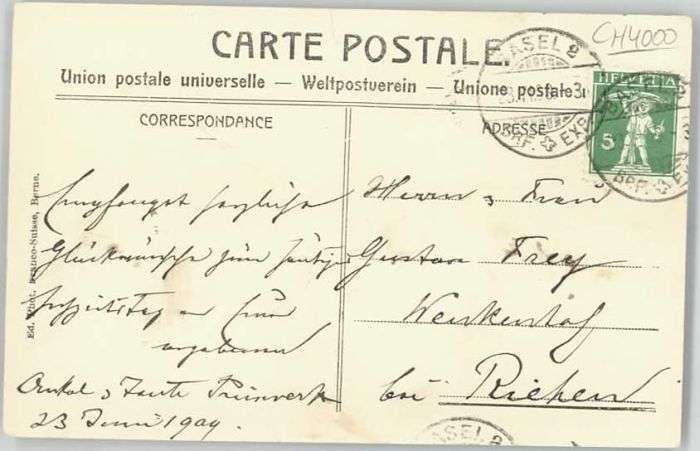 CH4000
CARTE POSTALE.
Union postale universelle — Weltpostverein — Unione postale
BASEL 2
BRF. EXP.
HELVETIA
5
CORRESPONDANCE
ADRESSE
Empfanget herzliche
Glückwünsche zum heutigen
Hochzeitstag
ergebenen
Onkel & Tante
23 Juni 1909
Herrn & Frau
Gustav Frey
Wenkenhof
bei Riehen
Ed. Phot. Franco-Suisse, Berne.
BASEL 2